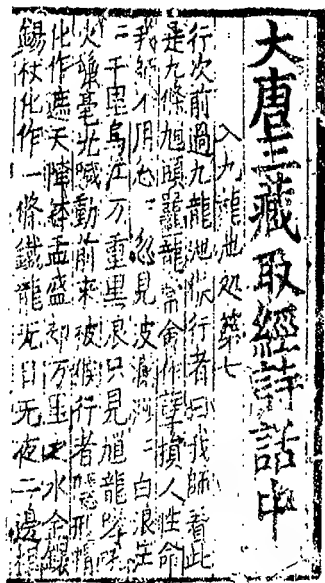 大唐三藏取經詩話中
入九龍池处第七
行次前過九龍池猴行者曰我師看此
是九條馗頭鼉龍常會作孽損人性命
我師不用忩忩忽見波瀾渺渺白浪茫
茫千里烏江万重黑浪只見馗龍哮吼
火鬣毫光喊動前來被猴行者隱形帽
化作遮天陣鉢盂盛却万里之水金鐶
錫杖化作一條鐵龍无日无夜二邊